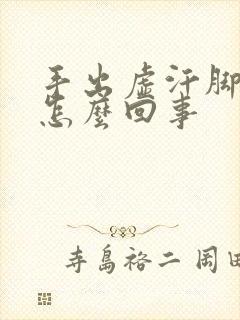 手出虛汗脚
怎麼回事
寺島裕二 岡田